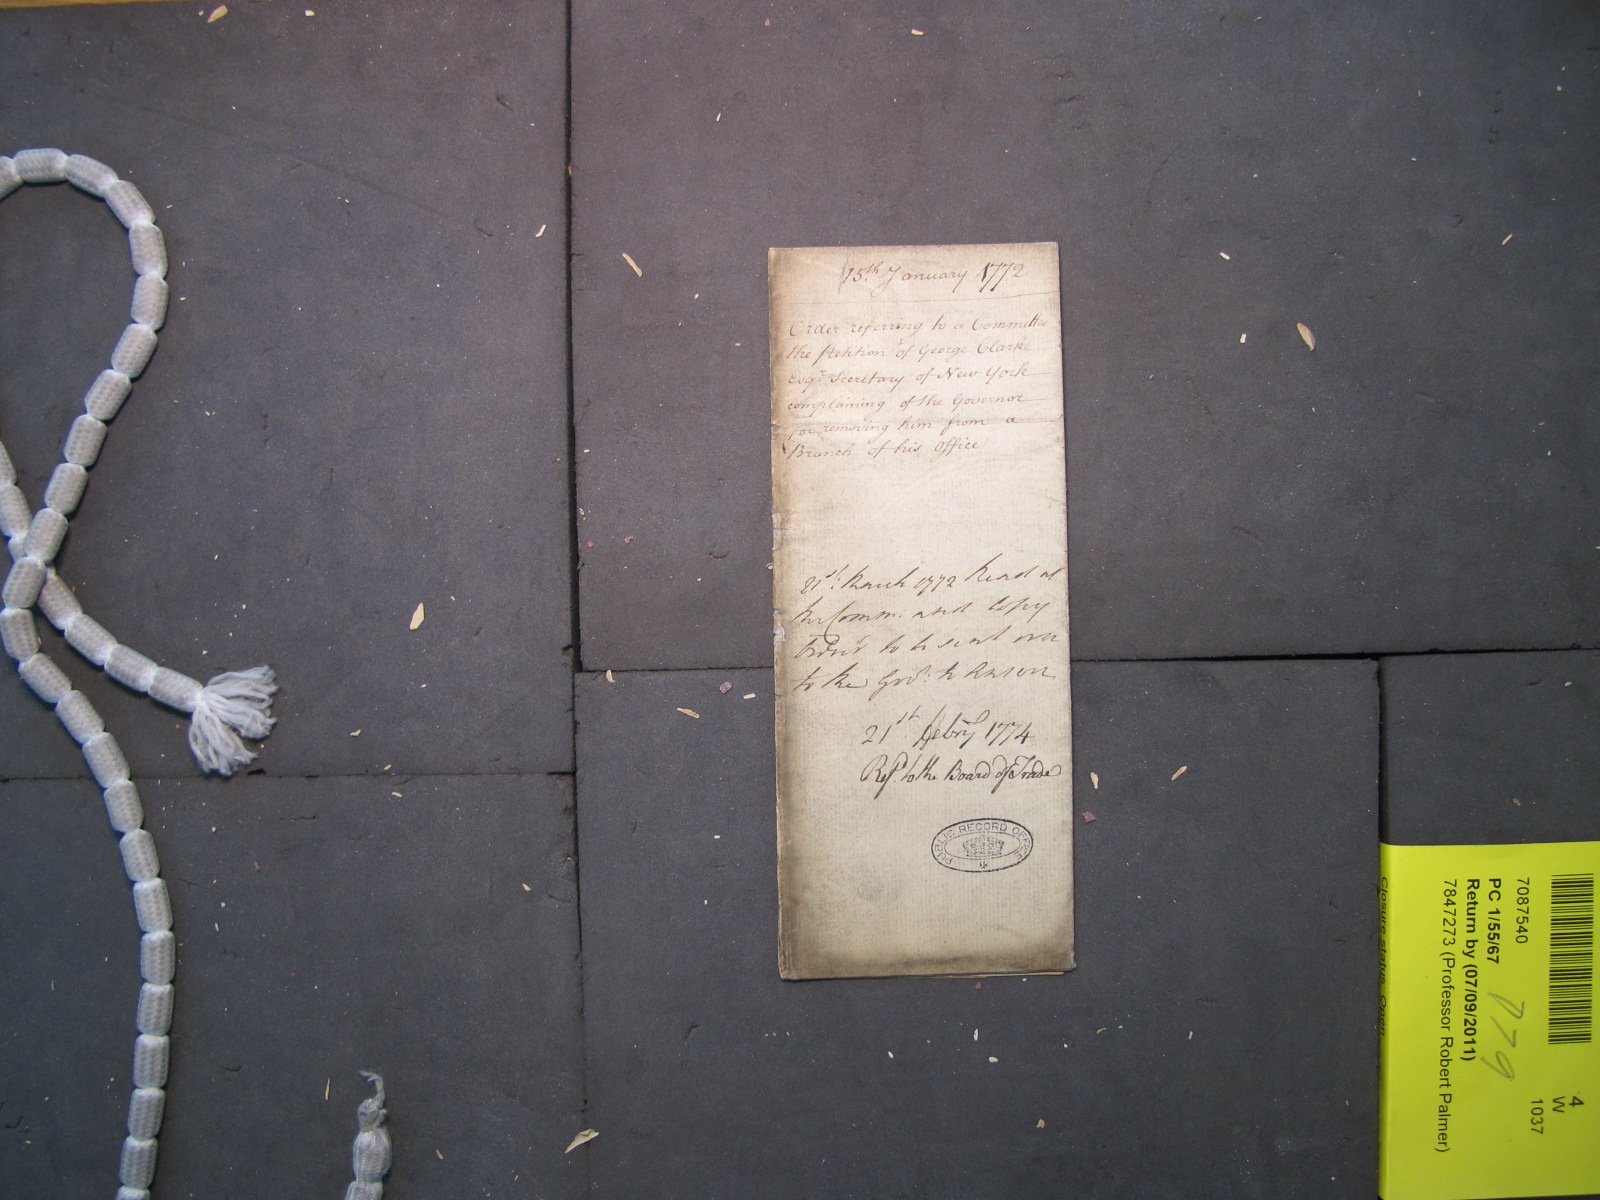 15th January 1772
Order referring to a Committee
the Petition of George Clarke
Esqr. Secretary of New York
complaining of the Governor
for removing him from a
Branch of his Office
21st. March 1772 Read at
the Comm. and Copy
Order'd to be sent over
to the Govr. to Answer
21st. Febry 1774
Refd. to the Board of Trade
PUBLIC RECORD OFFICE
7087540
PC 1/55/67
Return by (07/09/2011)
7847273 (Professor Robert Palmer)
Closure status: Open
779
4
W
1037